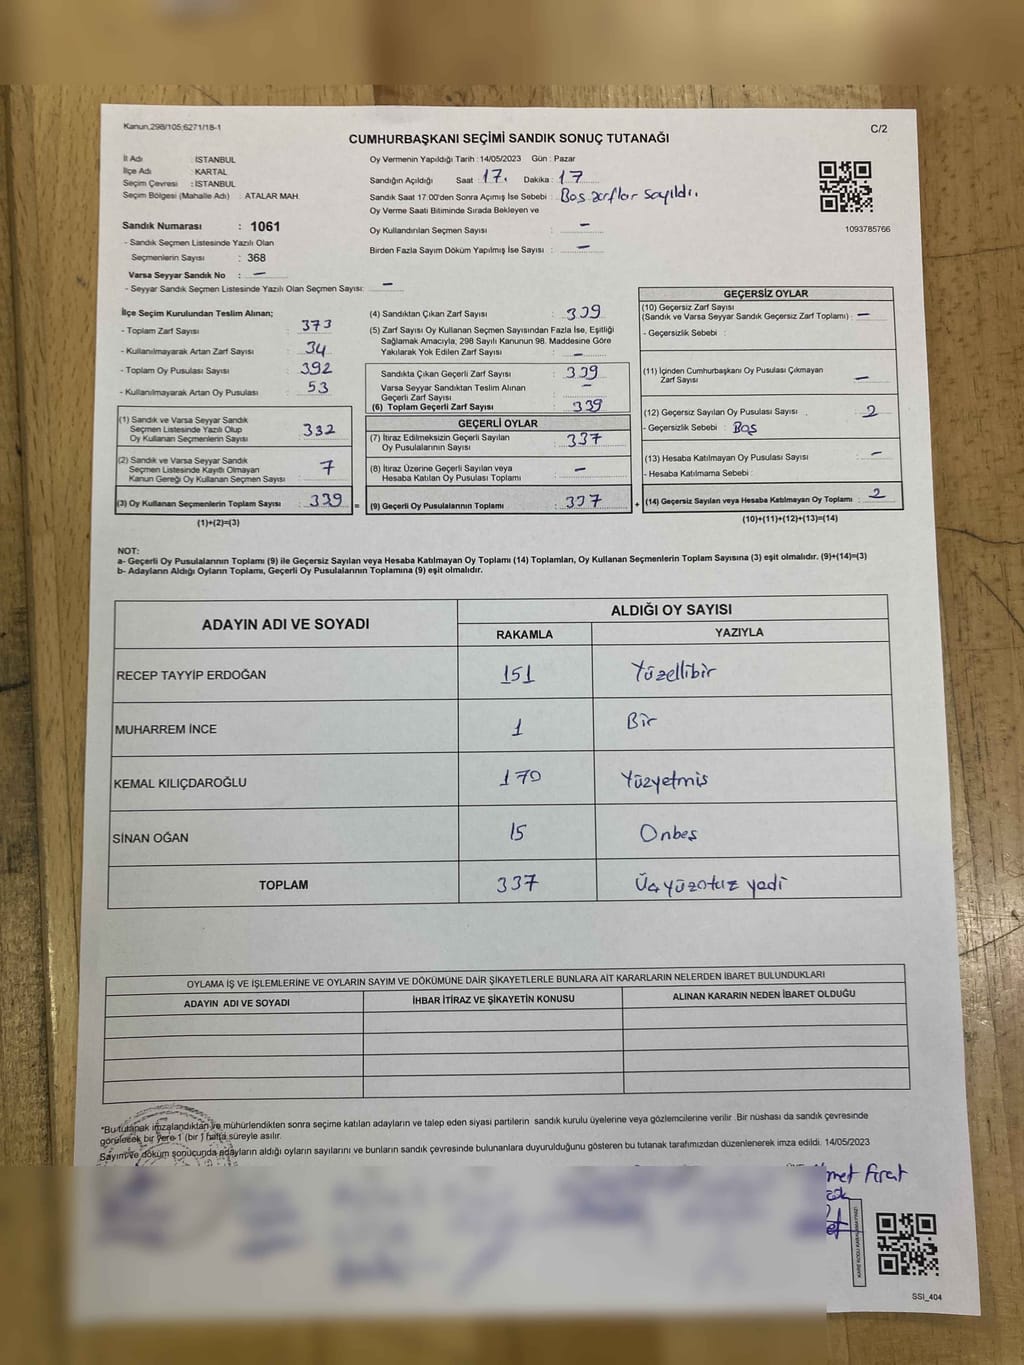 Kanun,298/105;6271/18-1
C/2
CUMHURBAŞKANI SEÇİMİ SANDIK SONUÇ TUTANAĞI
İl Adı : İSTANBUL
İlçe Adı : KARTAL
Seçim Çevresi : İSTANBUL
Seçim Bölgesi (Mahalle Adı) : ATALAR MAH.
Oy Vermenin Yapıldığı Tarih : 14/05/2023 Gün : Pazar
Sandığın Açıldığı Saat : 17. Dakika : 17
Sandık Saat 17:00'den Sonra Açımış İse Sebebi : Boş zarflar sayıldı.
Oy Verme Saati Bitiminde Sırada Bekleyen ve
Oy Kullandırılan Seçmen Sayısı : —
Birden Fazla Sayım Döküm Yapılmış İse Sayısı : —
1093785766
Sandık Numarası : 1061
- Sandık Seçmen Listesinde Yazılı Olan
Seçmenlerin Sayısı : 368
Varsa Seyyar Sandık No : —
- Seyyar Sandık Seçmen Listesinde Yazılı Olan Seçmen Sayısı: —
İlçe Seçim Kurulundan Teslim Alınan;
- Toplam Zarf Sayısı : 373
- Kullanılmayarak Artan Zarf Sayısı : 34
- Toplam Oy Pusulası Sayısı : 392
- Kullanılmayarak Artan Oy Pusulası : 53
(1) Sandık ve Varsa Seyyar Sandık
Seçmen Listesinde Yazılı Olup
Oy Kullanan Seçmenlerin Sayısı : 332
(2) Sandık ve Varsa Seyyar Sandık
Seçmen Listesinde Kayıtlı Olmayan
Kanun Gereği Oy Kullanan Seçmen Sayısı : 7
(3) Oy Kullanan Seçmenlerin Toplam Sayısı : 339
(1)+(2)=(3)
(4) Sandıktan Çıkan Zarf Sayısı : 339
(5) Zarf Sayısı Oy Kullanan Seçmen Sayısından Fazla İse, Eşitliği
Sağlamak Amacıyla, 298 Sayılı Kanunun 98. Maddesine Göre
Yakılarak Yok Edilen Zarf Sayısı : —
Sandıkta Çıkan Geçerli Zarf Sayısı : 339
Varsa Seyyar Sandıktan Teslim Alınan
Geçerli Zarf Sayısı : —
(6) Toplam Geçerli Zarf Sayısı : 339
GEÇERLİ OYLAR
(7) İtiraz Edilmeksizin Geçerli Sayılan
Oy Pusulasının Sayısı : 337
(8) İtiraz Üzerine Geçerli Sayılan veya
Hesaba Katılan Oy Pusulası Toplamı : —
= (9) Geçerli Oy Pusulalarının Toplamı : 337
GEÇERSİZ OYLAR
(10) Geçersiz Zarf Sayısı
(Sandık ve Varsa Seyyar Sandık Geçersiz Zarf Toplamı) : —
- Geçersizlik Sebebi :
(11) İçinden Cumhurbaşkanı Oy Pusulası Çıkmayan
Zarf Sayısı : —
(12) Geçersiz Sayılan Oy Pusulası Sayısı : 2
- Geçersizlik Sebebi : Boş
(13) Hesaba Katılmayan Oy Pusulası Sayısı : —
- Hesaba Katılmama Sebebi :
+ (14) Geçersiz Sayılan veya Hesaba Katılmayan Oy Toplamı : 2
(10)+(11)+(12)+(13)=(14)
NOT:
a- Geçerli Oy Pusulalarının Toplamı (9) ile Geçersiz Sayılan veya Hesaba Katılmayan Oy Toplamı (14) Toplamları, Oy Kullanan Seçmenlerin Toplam Sayısına (3) eşit olmalıdır. (9)+(14)=(3)
b- Adayların Aldığı Oyların Toplamı, Geçerli Oy Pusulalarının Toplamına (9) eşit olmalıdır.
ADAYIN ADI VE SOYADI
ALDIĞI OY SAYISI
RAKAMLA YAZIYLA
RECEP TAYYİP ERDOĞAN 151 Yüzellibir
MUHARREM İNCE 1 Bir
KEMAL KILIÇDAROĞLU 170 Yüzyetmiş
SİNAN OĞAN 15 Onbeş
TOPLAM 337 Üçyüzotuz yedi
OYLAMA İŞ VE İŞLEMLERİNE VE OYLARIN SAYIM VE DÖKÜMÜNE DAİR ŞİKAYETLERLE BUNLARA AİT KARARLARIN NELERDEN İBARET BULUNDUKLARI
ADAYIN ADI VE SOYADI İHBAR İTİRAZ VE ŞİKAYETİN KONUSU ALINAN KARARIN NEDEN İBARET OLDUĞU
*Bu tutanak imzalandıktan ve mühürlendikten sonra seçime katılan adayların ve talep eden siyasi partilerin sandık kurulu üyelerine veya gözlemcilerine verilir .Bir nüshası da sandık çevresinde
görülecek bir yere 1 (bir ) hafta süreyle asılır.
Sayım ve döküm sonucunda adayların aldığı oyların sayılarını ve bunların sandık çevresinde bulunanlara duyurulduğunu gösteren bu tutanak tarafımızdan düzenlenerek imza edildi. 14/05/2023
met Fırat
SSI_404